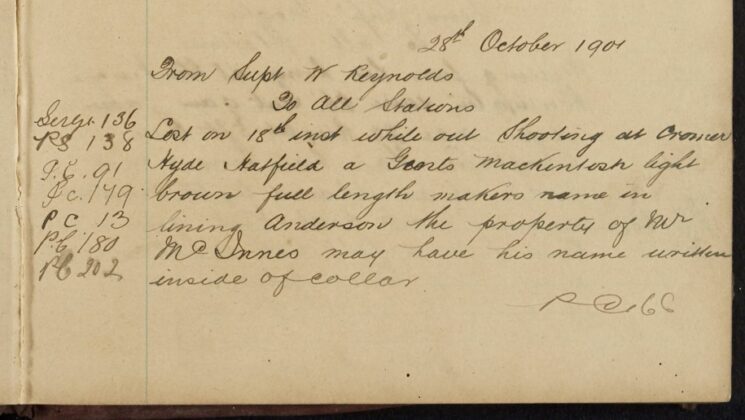 28th October 1901
From Supt W Reynolds
To All Stations
Sergt. 136
PS 138
P.C. 91
P.c. 149
P C 13
P.C. 180
PC 202
Lost on 18th inst while out Shooting at Cromer
Hyde Hatfield a Gents Mackintosh light
brown full length makers name in
lining Anderson the property of Mr
McInnes may have his name written
inside of collar
P C 66